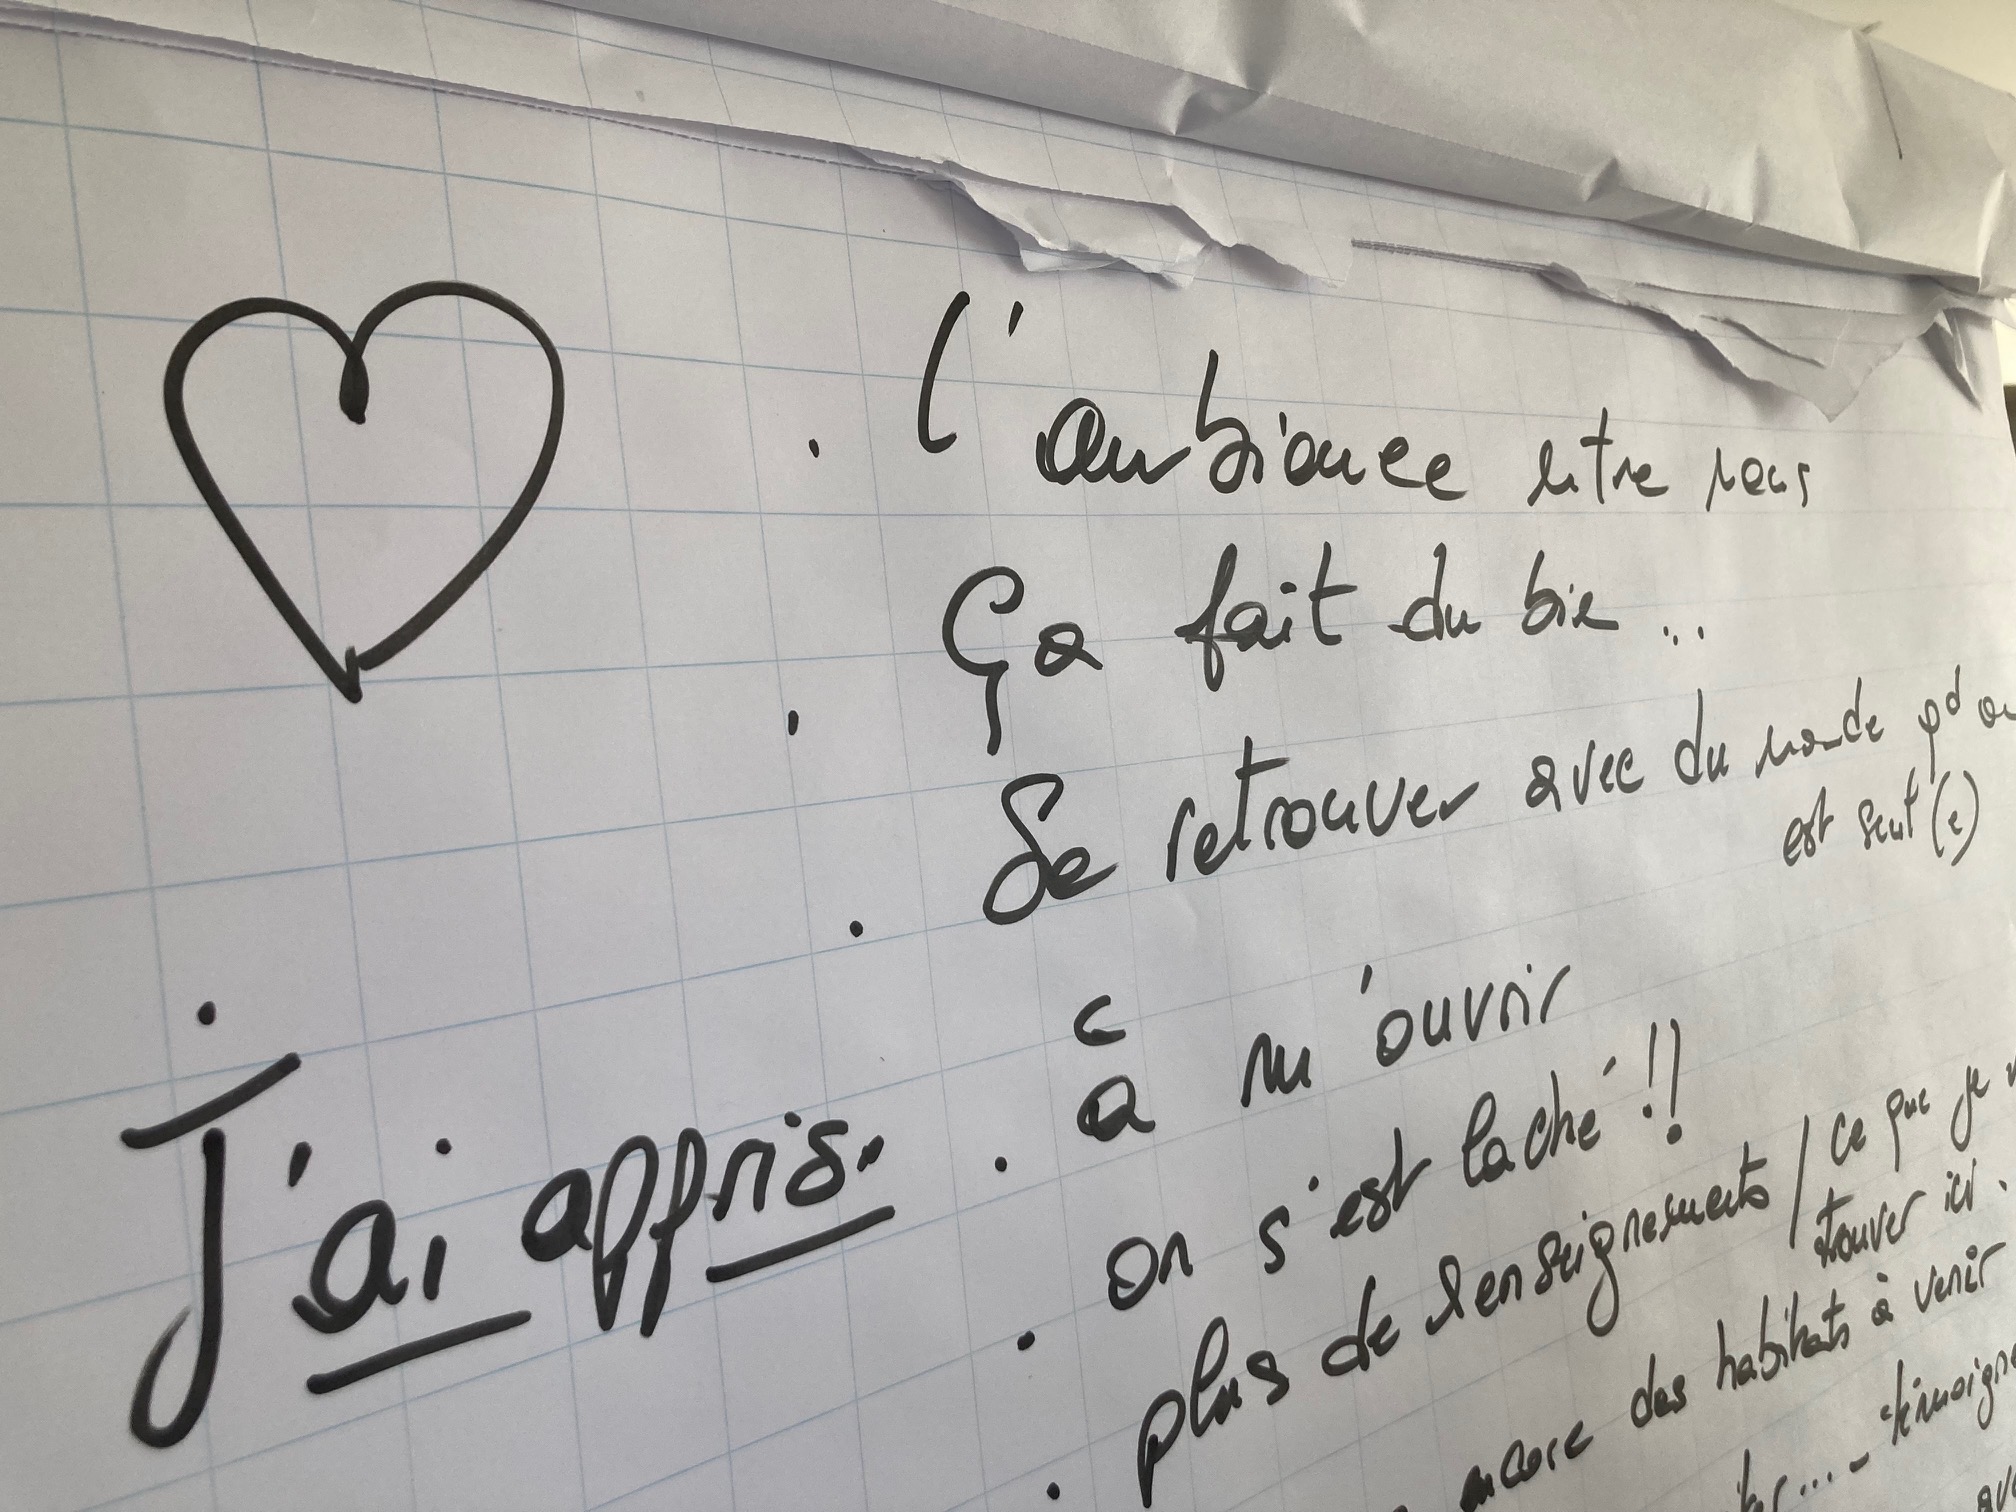 . l'ambiance entre nous
. Ça fait du bien...
. Se retrouver avec du monde qd on
est seul(e)
J'ai appris.. . à m'ouvrir
. on s'est laché !!
. plus de renseignements / ce que je
trouver ici.
encore des habitants à venir
témoigne